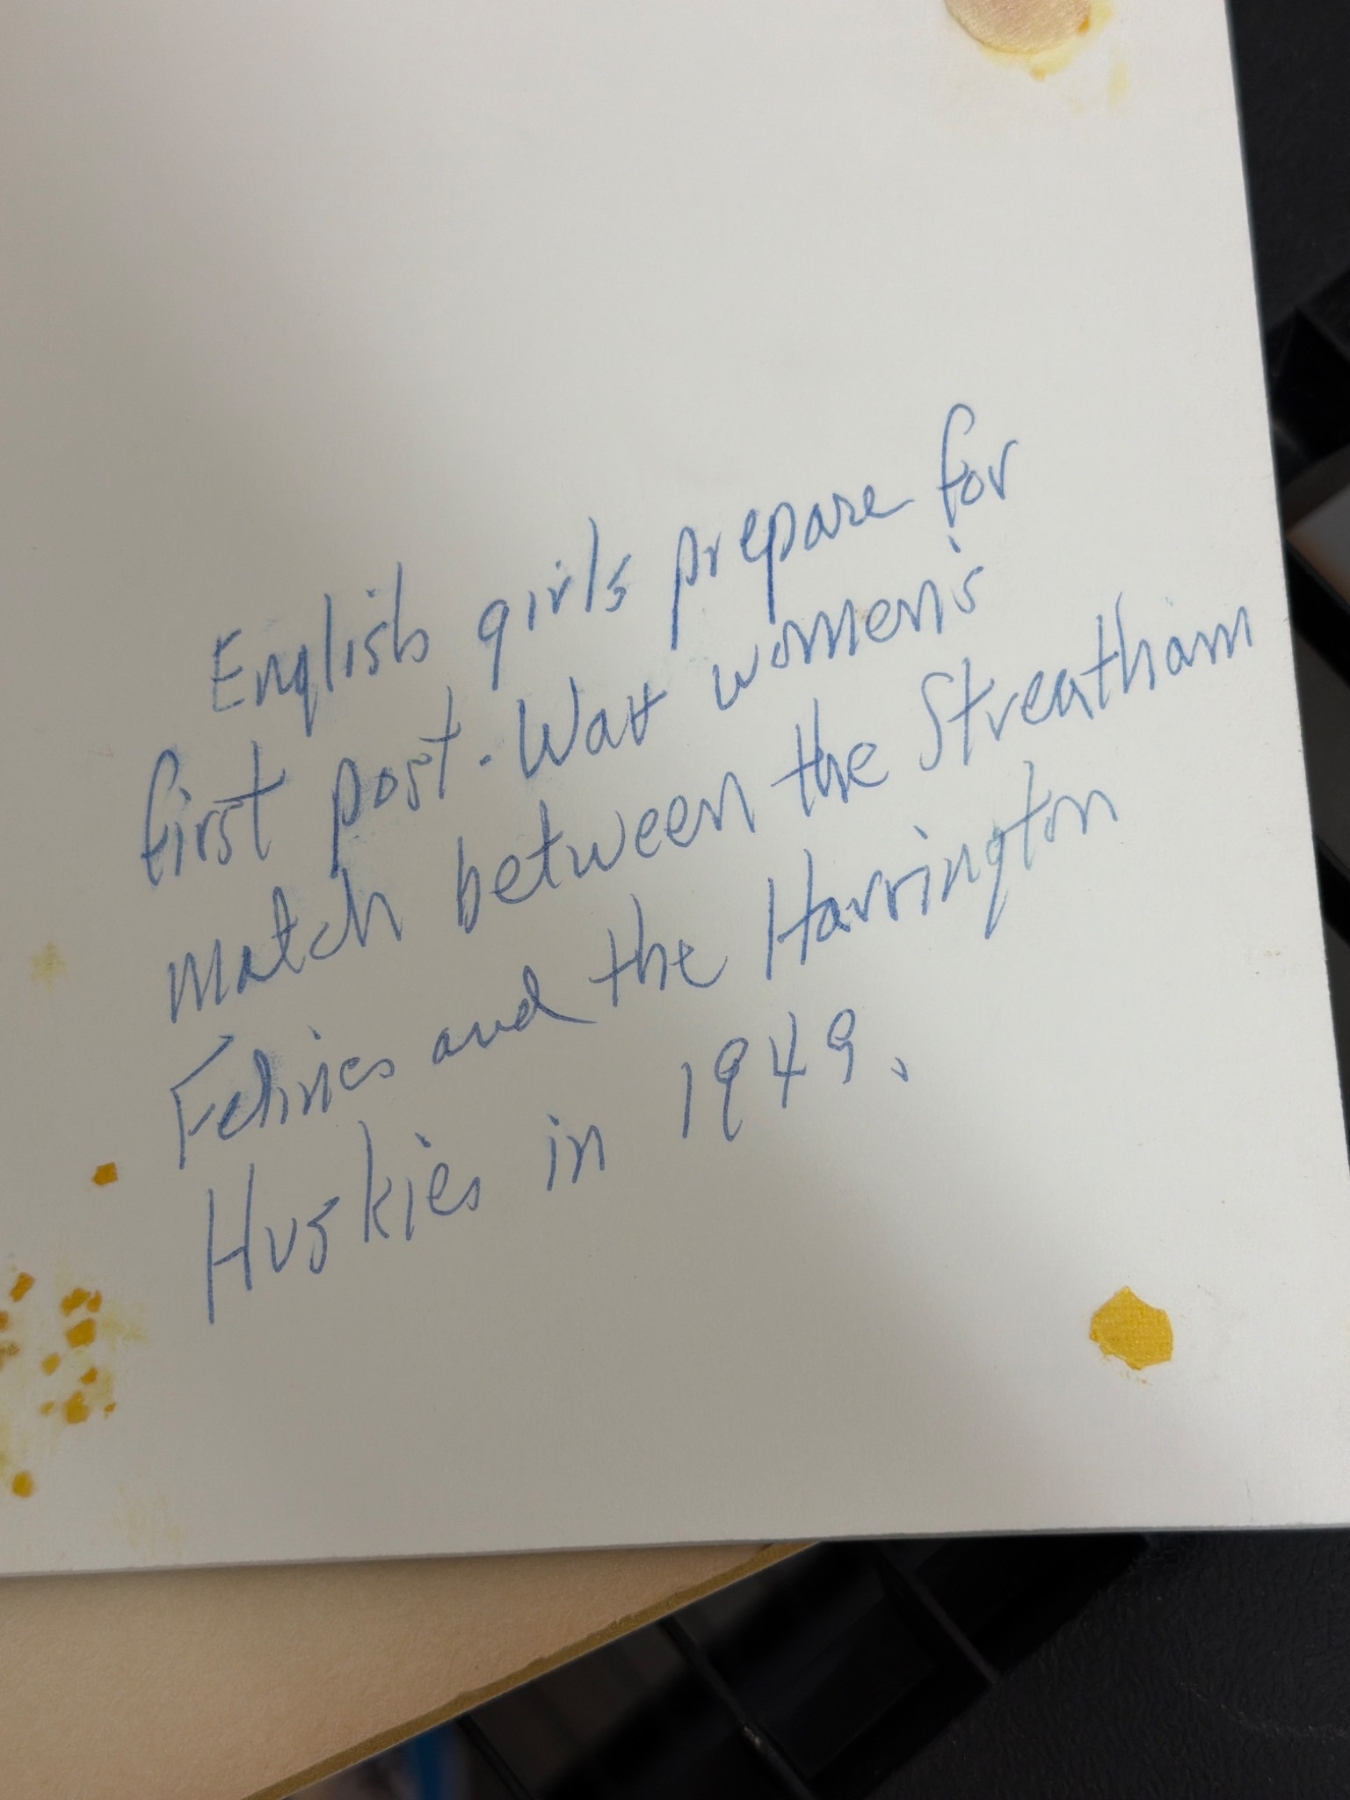 English girls prepare for
first post-War women's
match between the Streatham
Felines and the Harrington
Huskies in 1949.